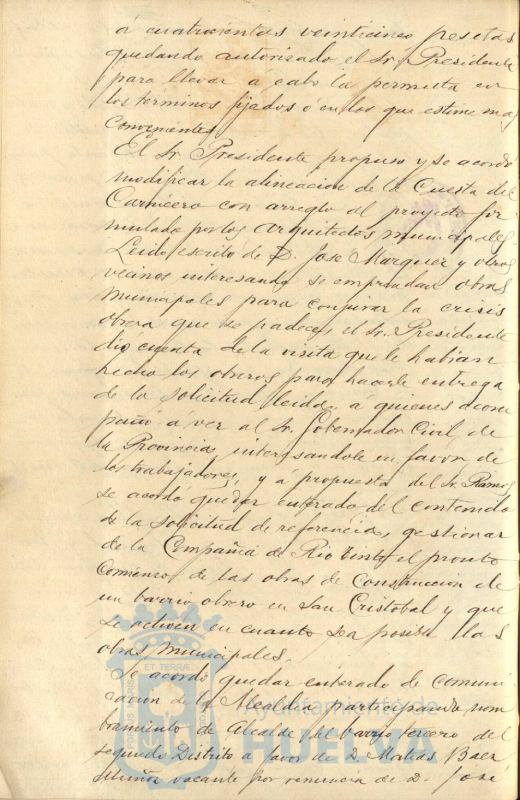 á cuatrocientas veinticinco pesetas
quedando autorizado el Sr. Presidente
para llevar á cabo la permuta en
los términos fijados ó en los que estime mas
convenientes.
El Sr. Presidente propuso y se acordó
modificar la alineacion de la Cuesta del
Carnicero con arreglo al proyecto for
mulado por los arquitectos municipales.
Leido escrito de D. José Marquez y otros
vecinos interesando se emprendan obras
municipales para conjurar la crisis
obrera que se padece, el Sr. Presidente
dio cuenta de la visita que le habian
hecho los obreros para hacerle entrega
de la solicitud leida, á quienes acom
pañó á ver al Sr. Gobernador Civil de
la Provincia, interesandole en favor de
los trabajadores, y á propuesta del Sr. Ramos
se acordó quedar enterado del contenido
de la solicitud de referencia, gestionar
de la Compañia de Rio Tinto el pronto
comienzo de las obras de construccion de
un barrio obrero en San Cristobal y que
se activen en cuanto sea posible las
obras municipales.
Se acordó quedar enterado de comuni
cacion de la Alcaldia participando nom
bramiento de Alcalde del barrio tercero del
segundo Distrito á favor de D. Matias Baez
vacante por renuncia de D. José
PORTUS MARIS ET TERRAE CUSTODIA
Ayuntamiento de
HUELVA